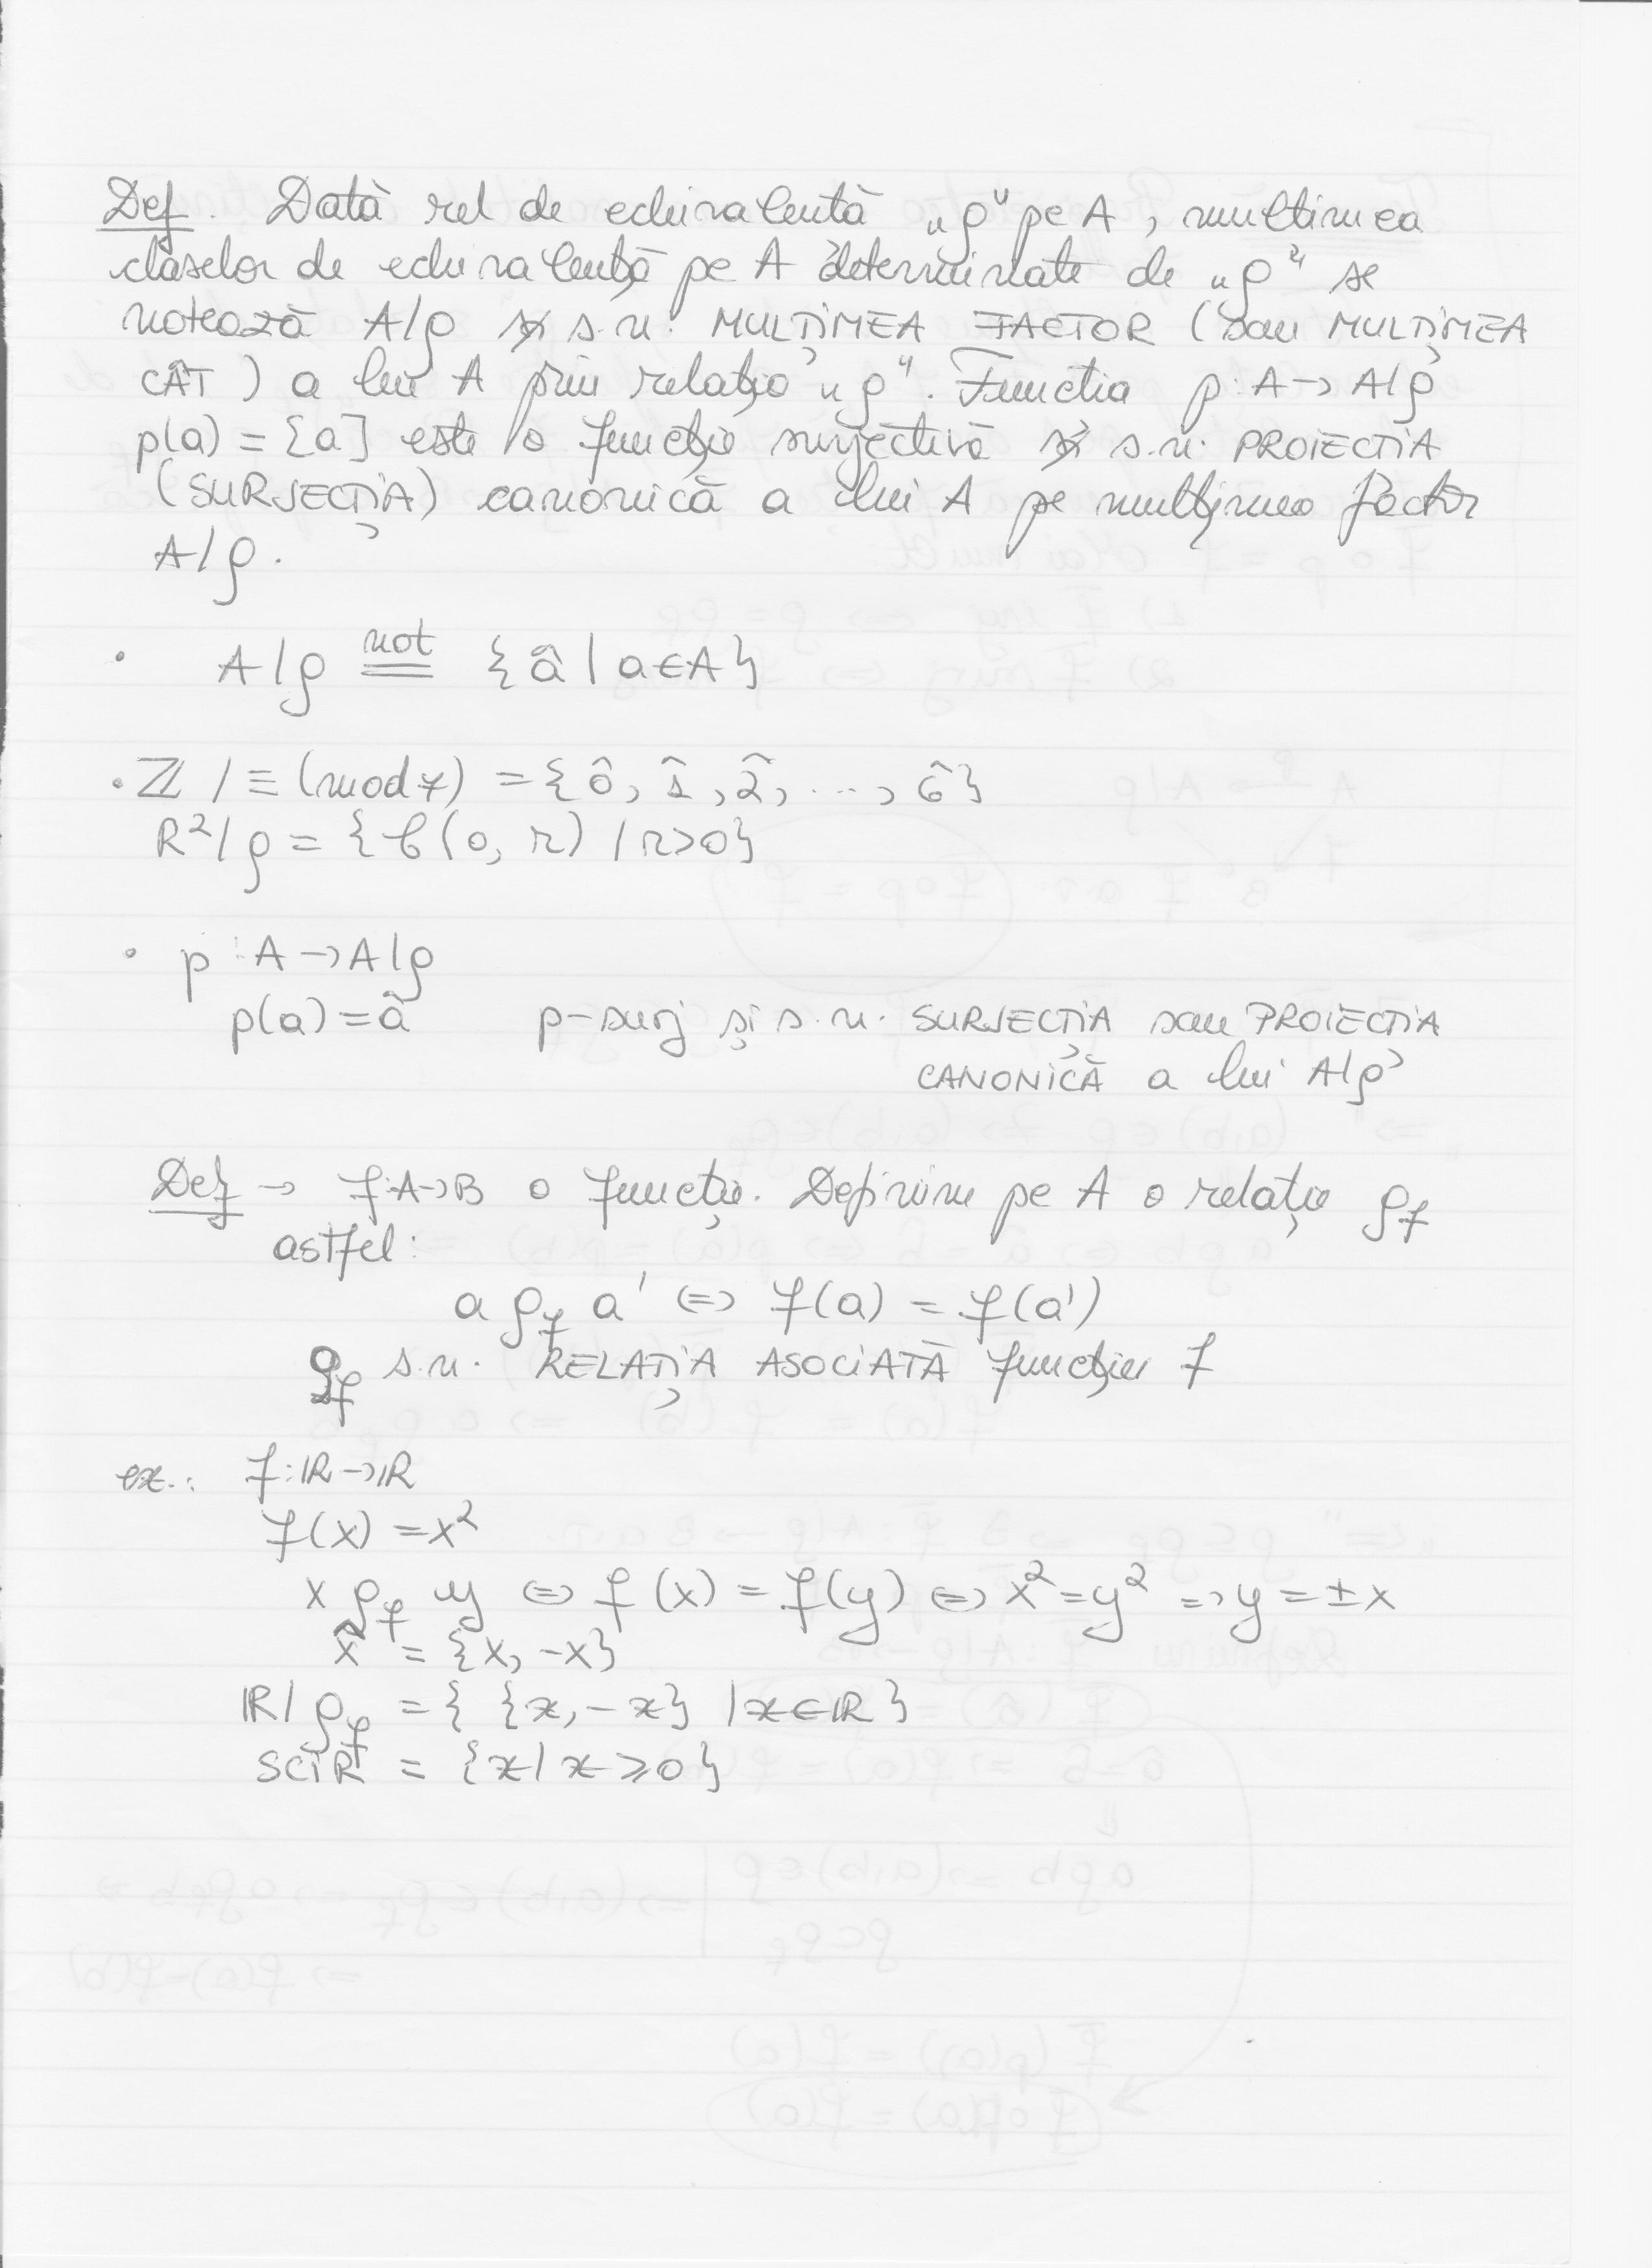 Def. Dată rel de echivalentă „ρ" pe A, multimea
claselor de echivalență pe A determinate de „ρ" se
notează A/ρ și s.n. MULȚIMEA FACTOR (sau MULȚIMEA
CÂT) a lui A prin relația „ρ". Functia p: A→A/ρ
p(a) = [a] este o funcție surjectivă și s.n. PROIECTIA
(SURJECȚIA) canonică a lui A pe mulțimea factor
A/ρ.
• A/ρ not== {â | a∈A}
• ℤ/≡(mod 7) = {0̂, 1̂, 2̂, ..., 6̂}
R²/ρ = {C(0, r) / r>0}
• p: A→A/ρ
p(a) = â p-surj și s.n. SURJECȚIA sau PROIECTIA
CANONICĂ a lui A/ρ
Def → f:A→B o funcție. Definim pe A o relație ρ_f
astfel:
a ρ_f a' ⇔ f(a) = f(a')
ρ_f s.n. RELAȚIA ASOCIATĂ funcției f
ex.: f:ℝ→ℝ
f(x) = x²
x ρ_f y ⇔ f(x) = f(y) ⇔ x² = y² ⇒ y = ±x
x̂ = {x, -x}
ℝ/ρ_f = { {x, -x} / x∈ℝ }
SCIR = {x / x ⩾ 0}